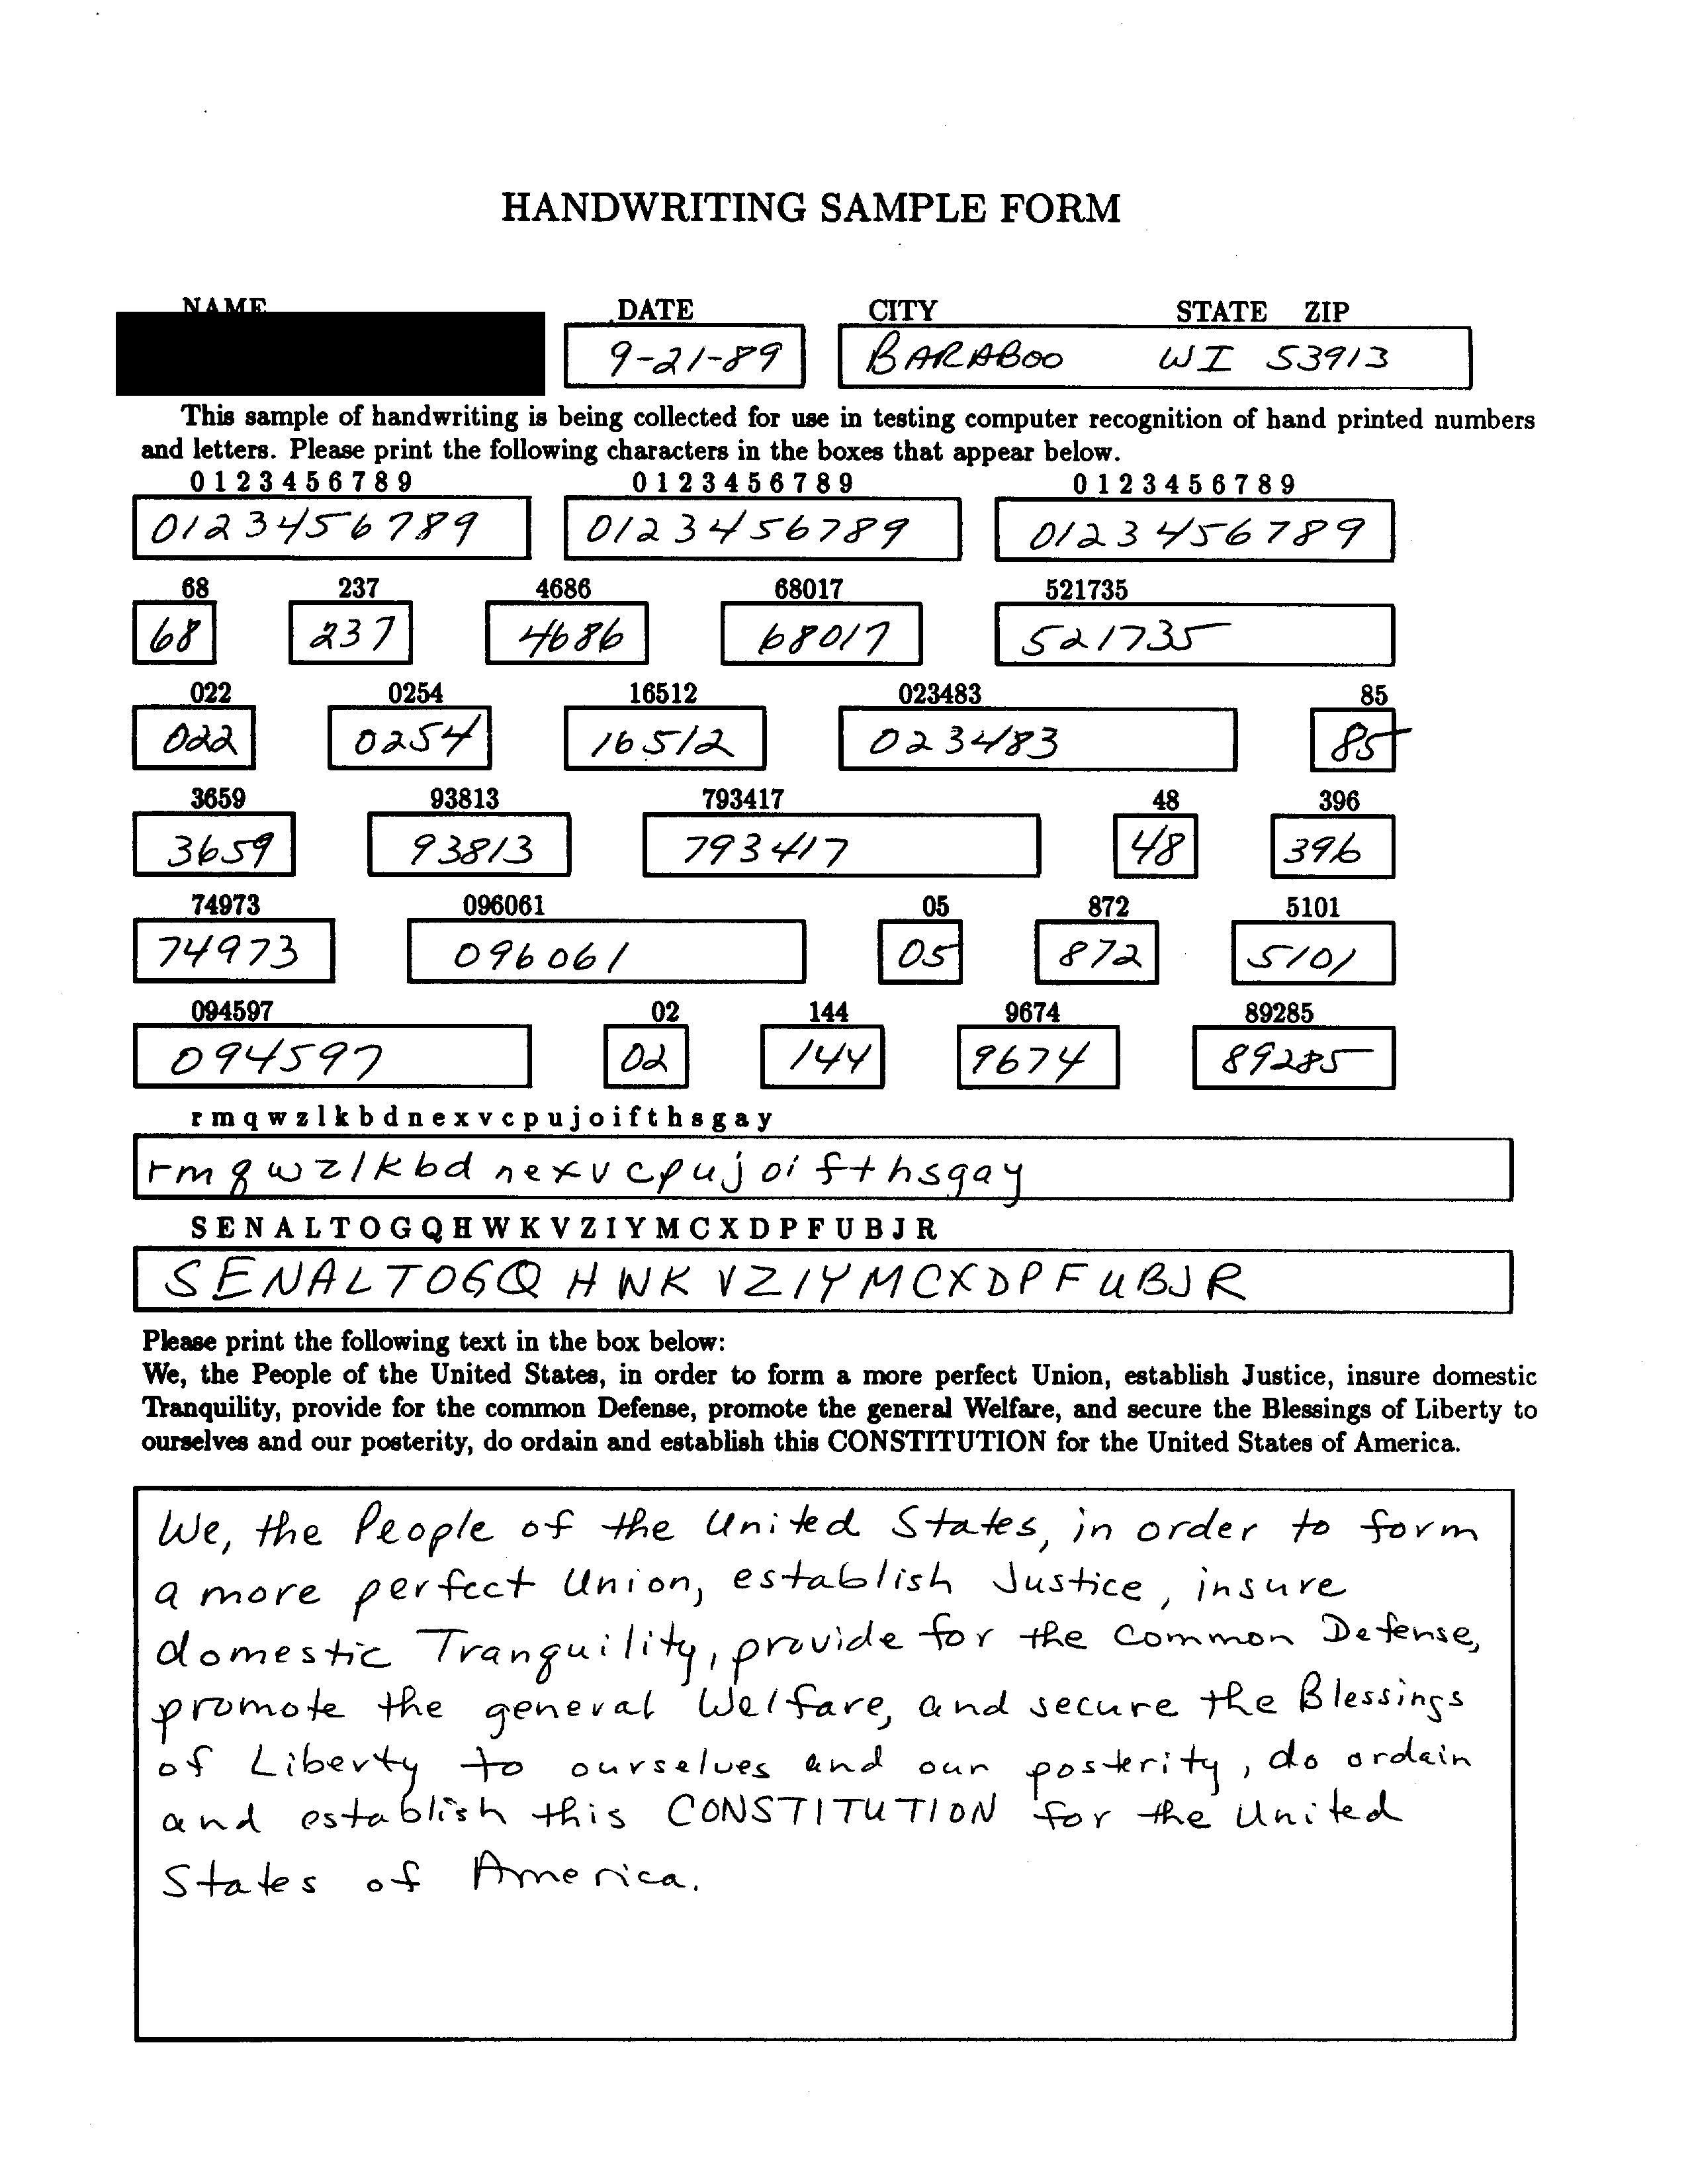 HANDWRITING SAMPLE FORM
NAME DATE CITY STATE ZIP
9-21-89 BARABOO WI 53913
This sample of handwriting is being collected for use in testing computer recognition of hand printed numbers
and letters. Please print the following characters in the boxes that appear below.
0 1 2 3 4 5 6 7 8 9 0 1 2 3 4 5 6 7 8 9 0 1 2 3 4 5 6 7 8 9
0123456789 0123456789 0123456789
68 237 4686 68017 521735
68 237 4686 68017 521735
022 0254 16512 023483 85
022 0254 16512 023483 85
3659 93813 793417 48 396
3659 93813 793417 48 396
74973 096061 05 872 5101
74973 096061 05 872 5101
094597 02 144 9674 89285
094597 02 144 9674 89285
r m q w z l k b d n e x v c p u j o i f t h s g a y
rmqwzlkbdnexvcpujoifthsgay
S E N A L T O G Q H W K V Z I Y M C X D P F U B J R
SENALTOGQHWKVZIYMCXDPFUBJR
Please print the following text in the box below:
We, the People of the United States, in order to form a more perfect Union, establish Justice, insure domestic
Tranquility, provide for the common Defense, promote the general Welfare, and secure the Blessings of Liberty to
ourselves and our posterity, do ordain and establish this CONSTITUTION for the United States of America.
We, the People of the United States, in order to form
a more perfect Union, establish Justice, insure
domestic Tranquility, provide for the common Defense,
promote the general Welfare, and secure the Blessings
of Liberty to ourselves and our posterity, do ordain
and establish this CONSTITUTION for the United
States of America.